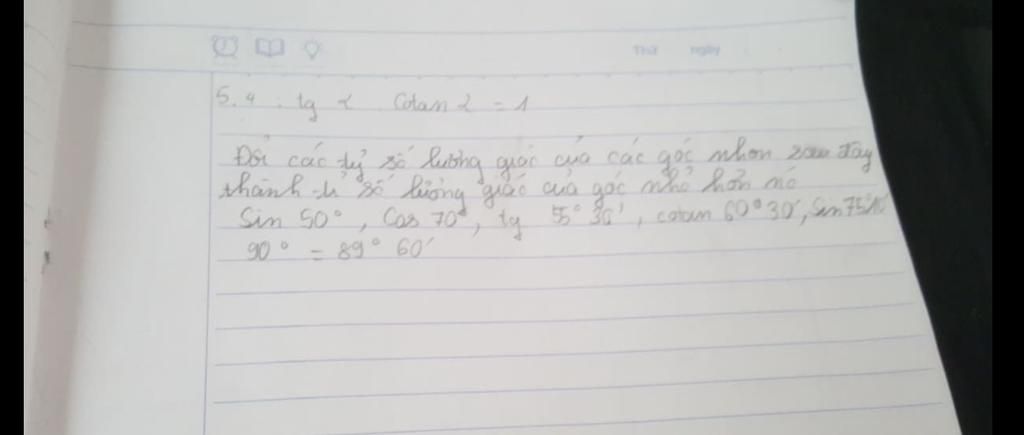 Thứ ngày
5.4 : tg α Cotan α = 1
Đổi các tỷ số lượng giác của các góc nhọn sau đây
thành tỉ số lượng giác của góc nhỏ hơn nó
Sin 50°, Cos 70°, tg 55° 30', cotan 60° 30', Sin 75°
90° = 89° 60'